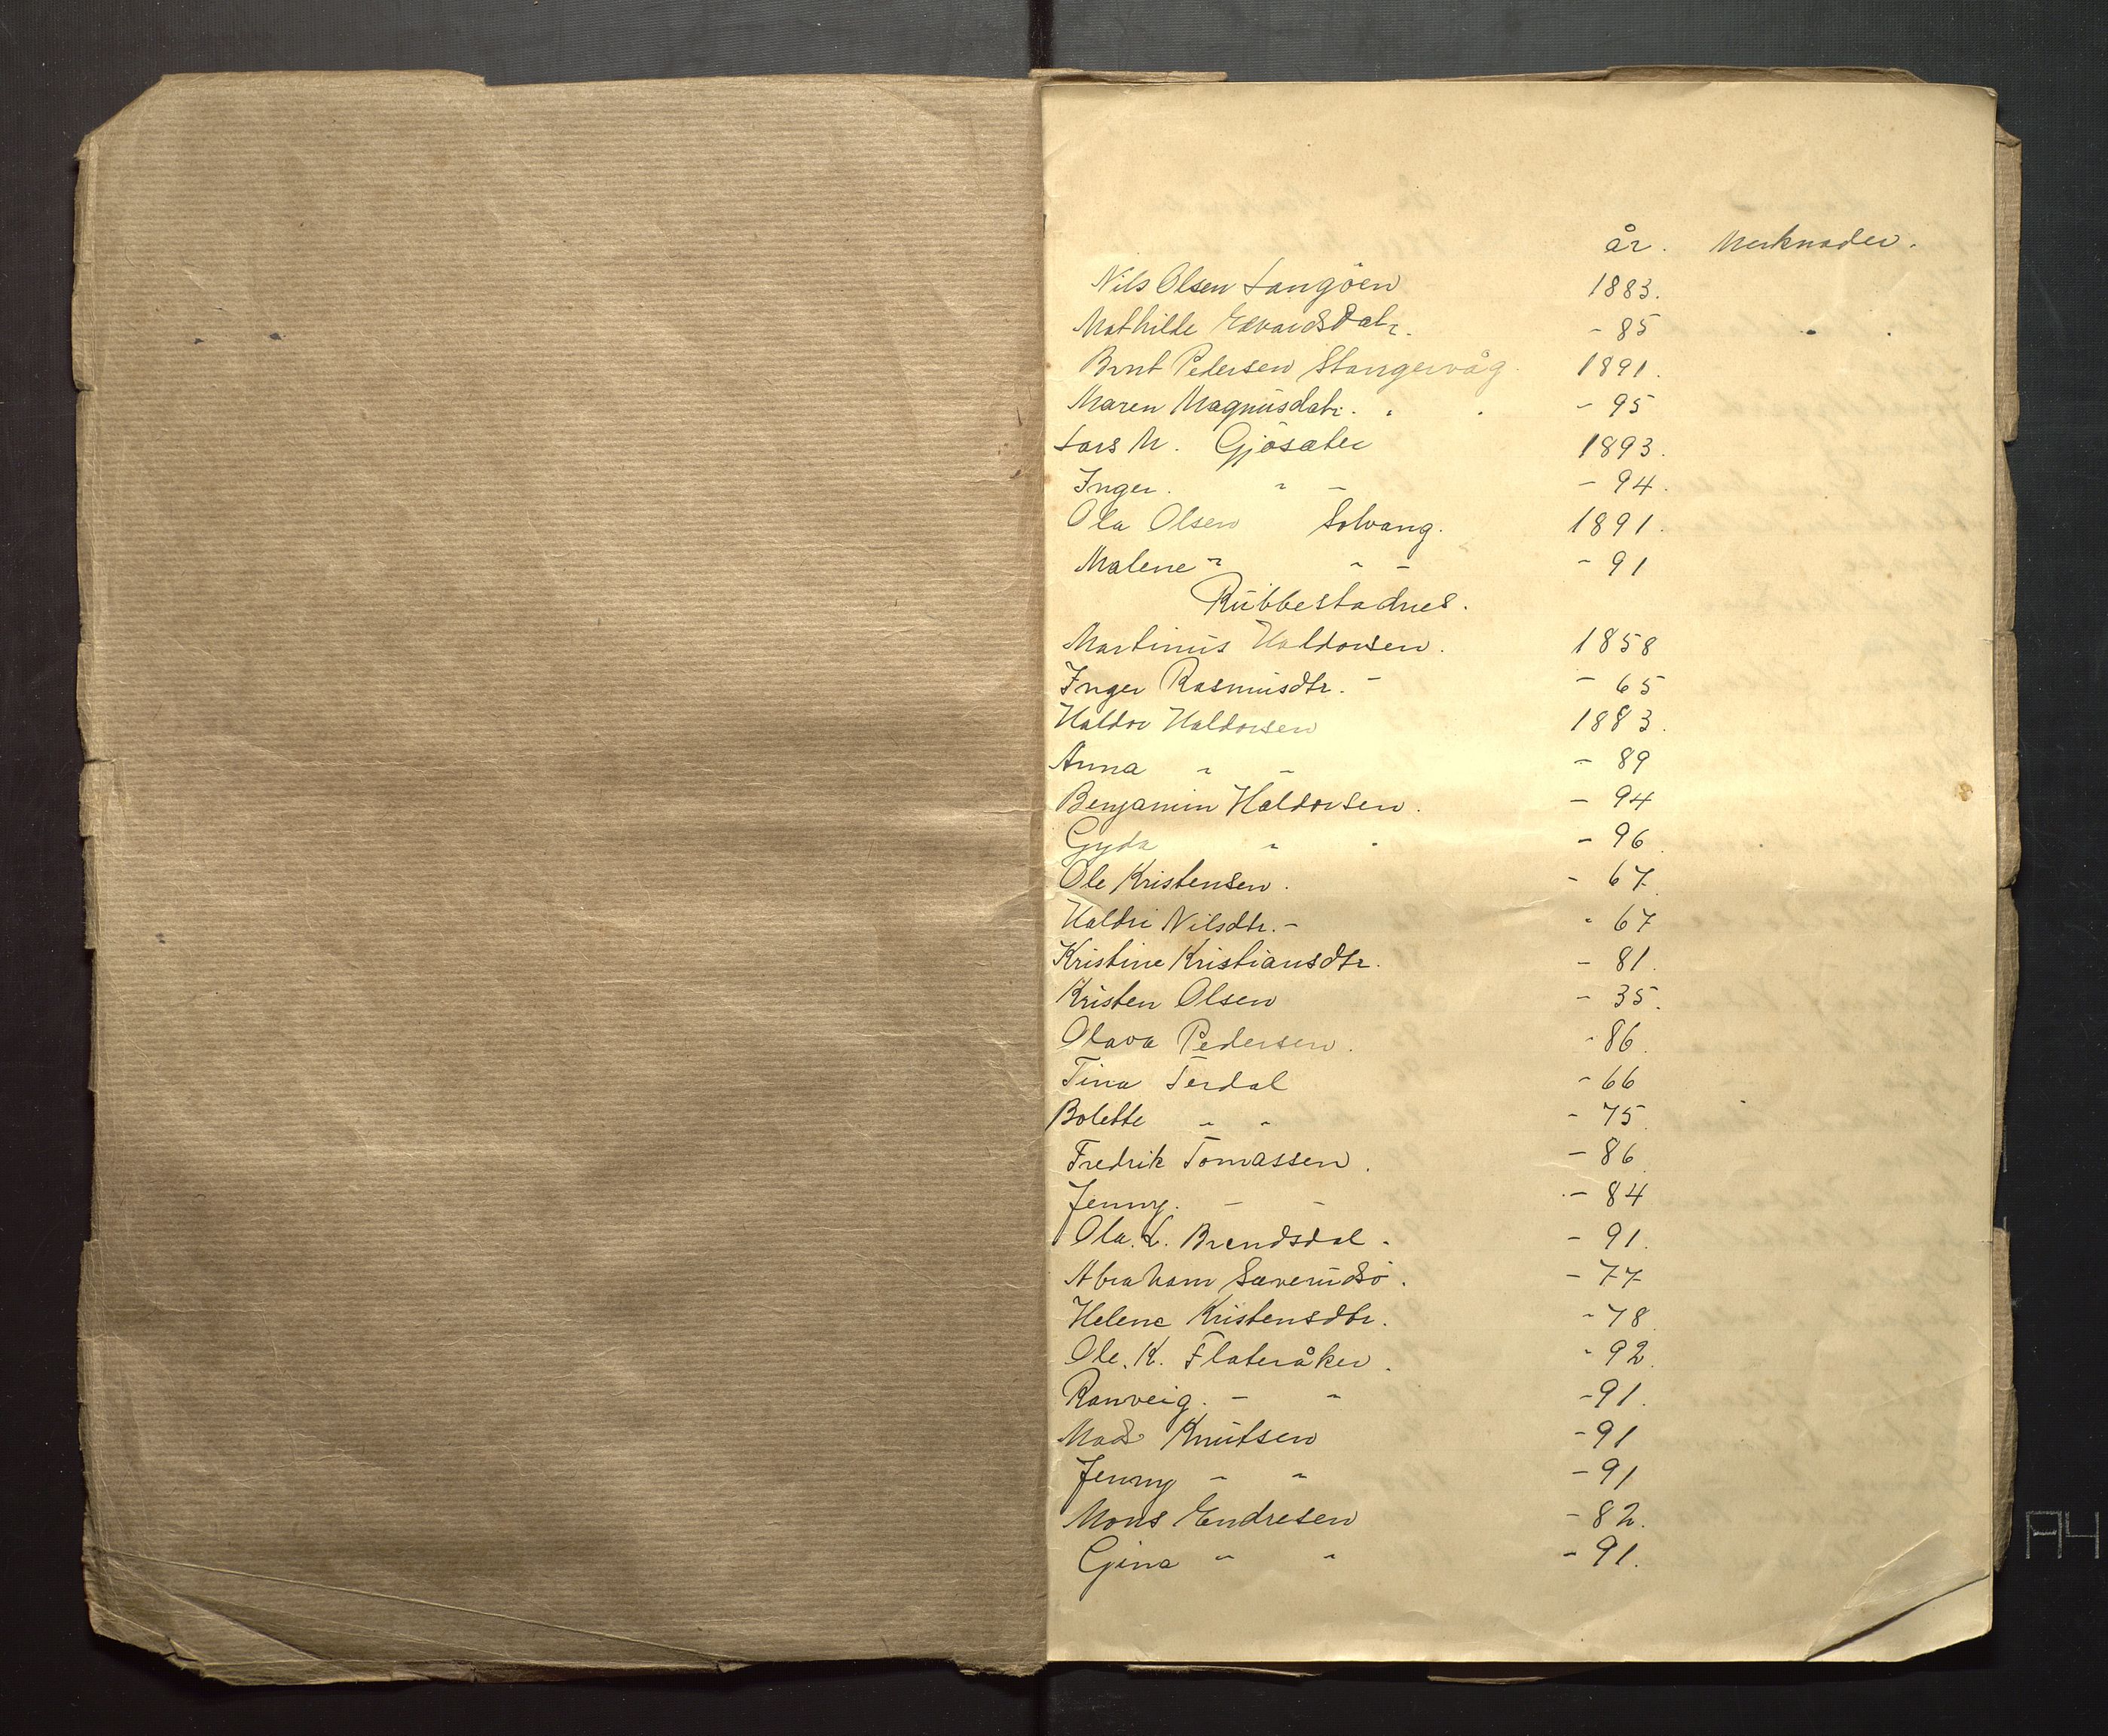 år. Merknader.
Nils Olsen Langöen 1883.
Mathilde Edvardsdatr. - 85
Brnt Pedersen Stangervåg. 1891.
Maren Magnusdatr. . . - 95
Lars M. Gjösæter 1893.
Inger. " - - 94.
Ola Olsen Solvang. 1891.
Malene " " - - 91
Rubbestadnes.
Martinus Haldorsen. 1858
Inger Rasmusdtr. - - 65
Haldor Haldorsen 1883.
Anna " - - 89
Benjamin Haldorsen. - 94
Gyda " " - 96.
Ole Kristensen. - 67.
Haldri Nilsdtr. - - 67
Kristine Kristiansdtr. - 81.
Kristen Olsen - 35.
Olava Pedersen. - 86.
Tina Terdal - 66
Bolette " " - 75.
Fredrik Tomassen. - 86.
Jenny. - - - 84
Ola. L. Brendsdal. - 91.
Abraham Sæverudsö. - 77
Helene Kristensdtr. - 78.
Ole. K. Flateråker. - 92.
Ranveig. - " - 91.
Mads Knutsen - 91
Jenny - " - 91
Mons Endresen - 82.
Gina " " - 91.
A4